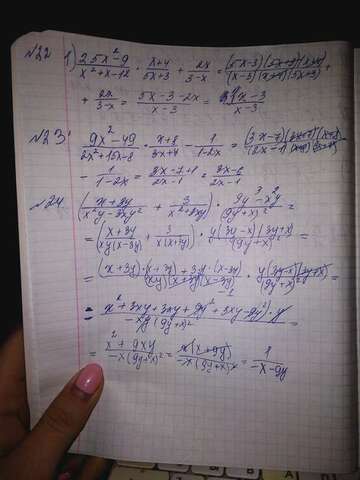 №22 1) (25x²-9)/(x²+x-12) · (x+4)/(5x+3) + 2x/(3-x) = (5x-3)(5x+3)(x+4)/(x-3)(x+4)(5x+3) +
+ 2x/(3-x) = (5x-3-2x)/(x-3) = (3x-3)/(x-3)
№23 (9x²-49)/(2x²+15x-8) · (x+8)/(3x+7) - 1/(1-2x) = (3x-7)(3x+7)(x+8)/(2x-1)(x+8)(3x+7)
- 1/(1-2x) = (3x-7+1)/(2x-1) = (3x-6)/(2x-1)
№24 ((x+3y)/(x²y-3xy²) + 3/(x²+3xy)) · (9y³-x²y)/(9y+x)² =
= ((x+3y)/xy(x-3y) + 3/x(x+3y)) · y(3y-x)(3y+x)/(9y+x)² =
= (x+3y)·(x+3y)+3y·(x-3y)/xy(x+3y)(x-3y) · y(3y-x)(3y+x)/(9y+x)² =
= (x²+3xy+3xy+9y²+3xy-9y²)·y/-xy(9y+x)² =
= (x²+9xy)/-x(9y+x)² = x(x+9y)/-x(9y+x)² = 1/(-x-9y)